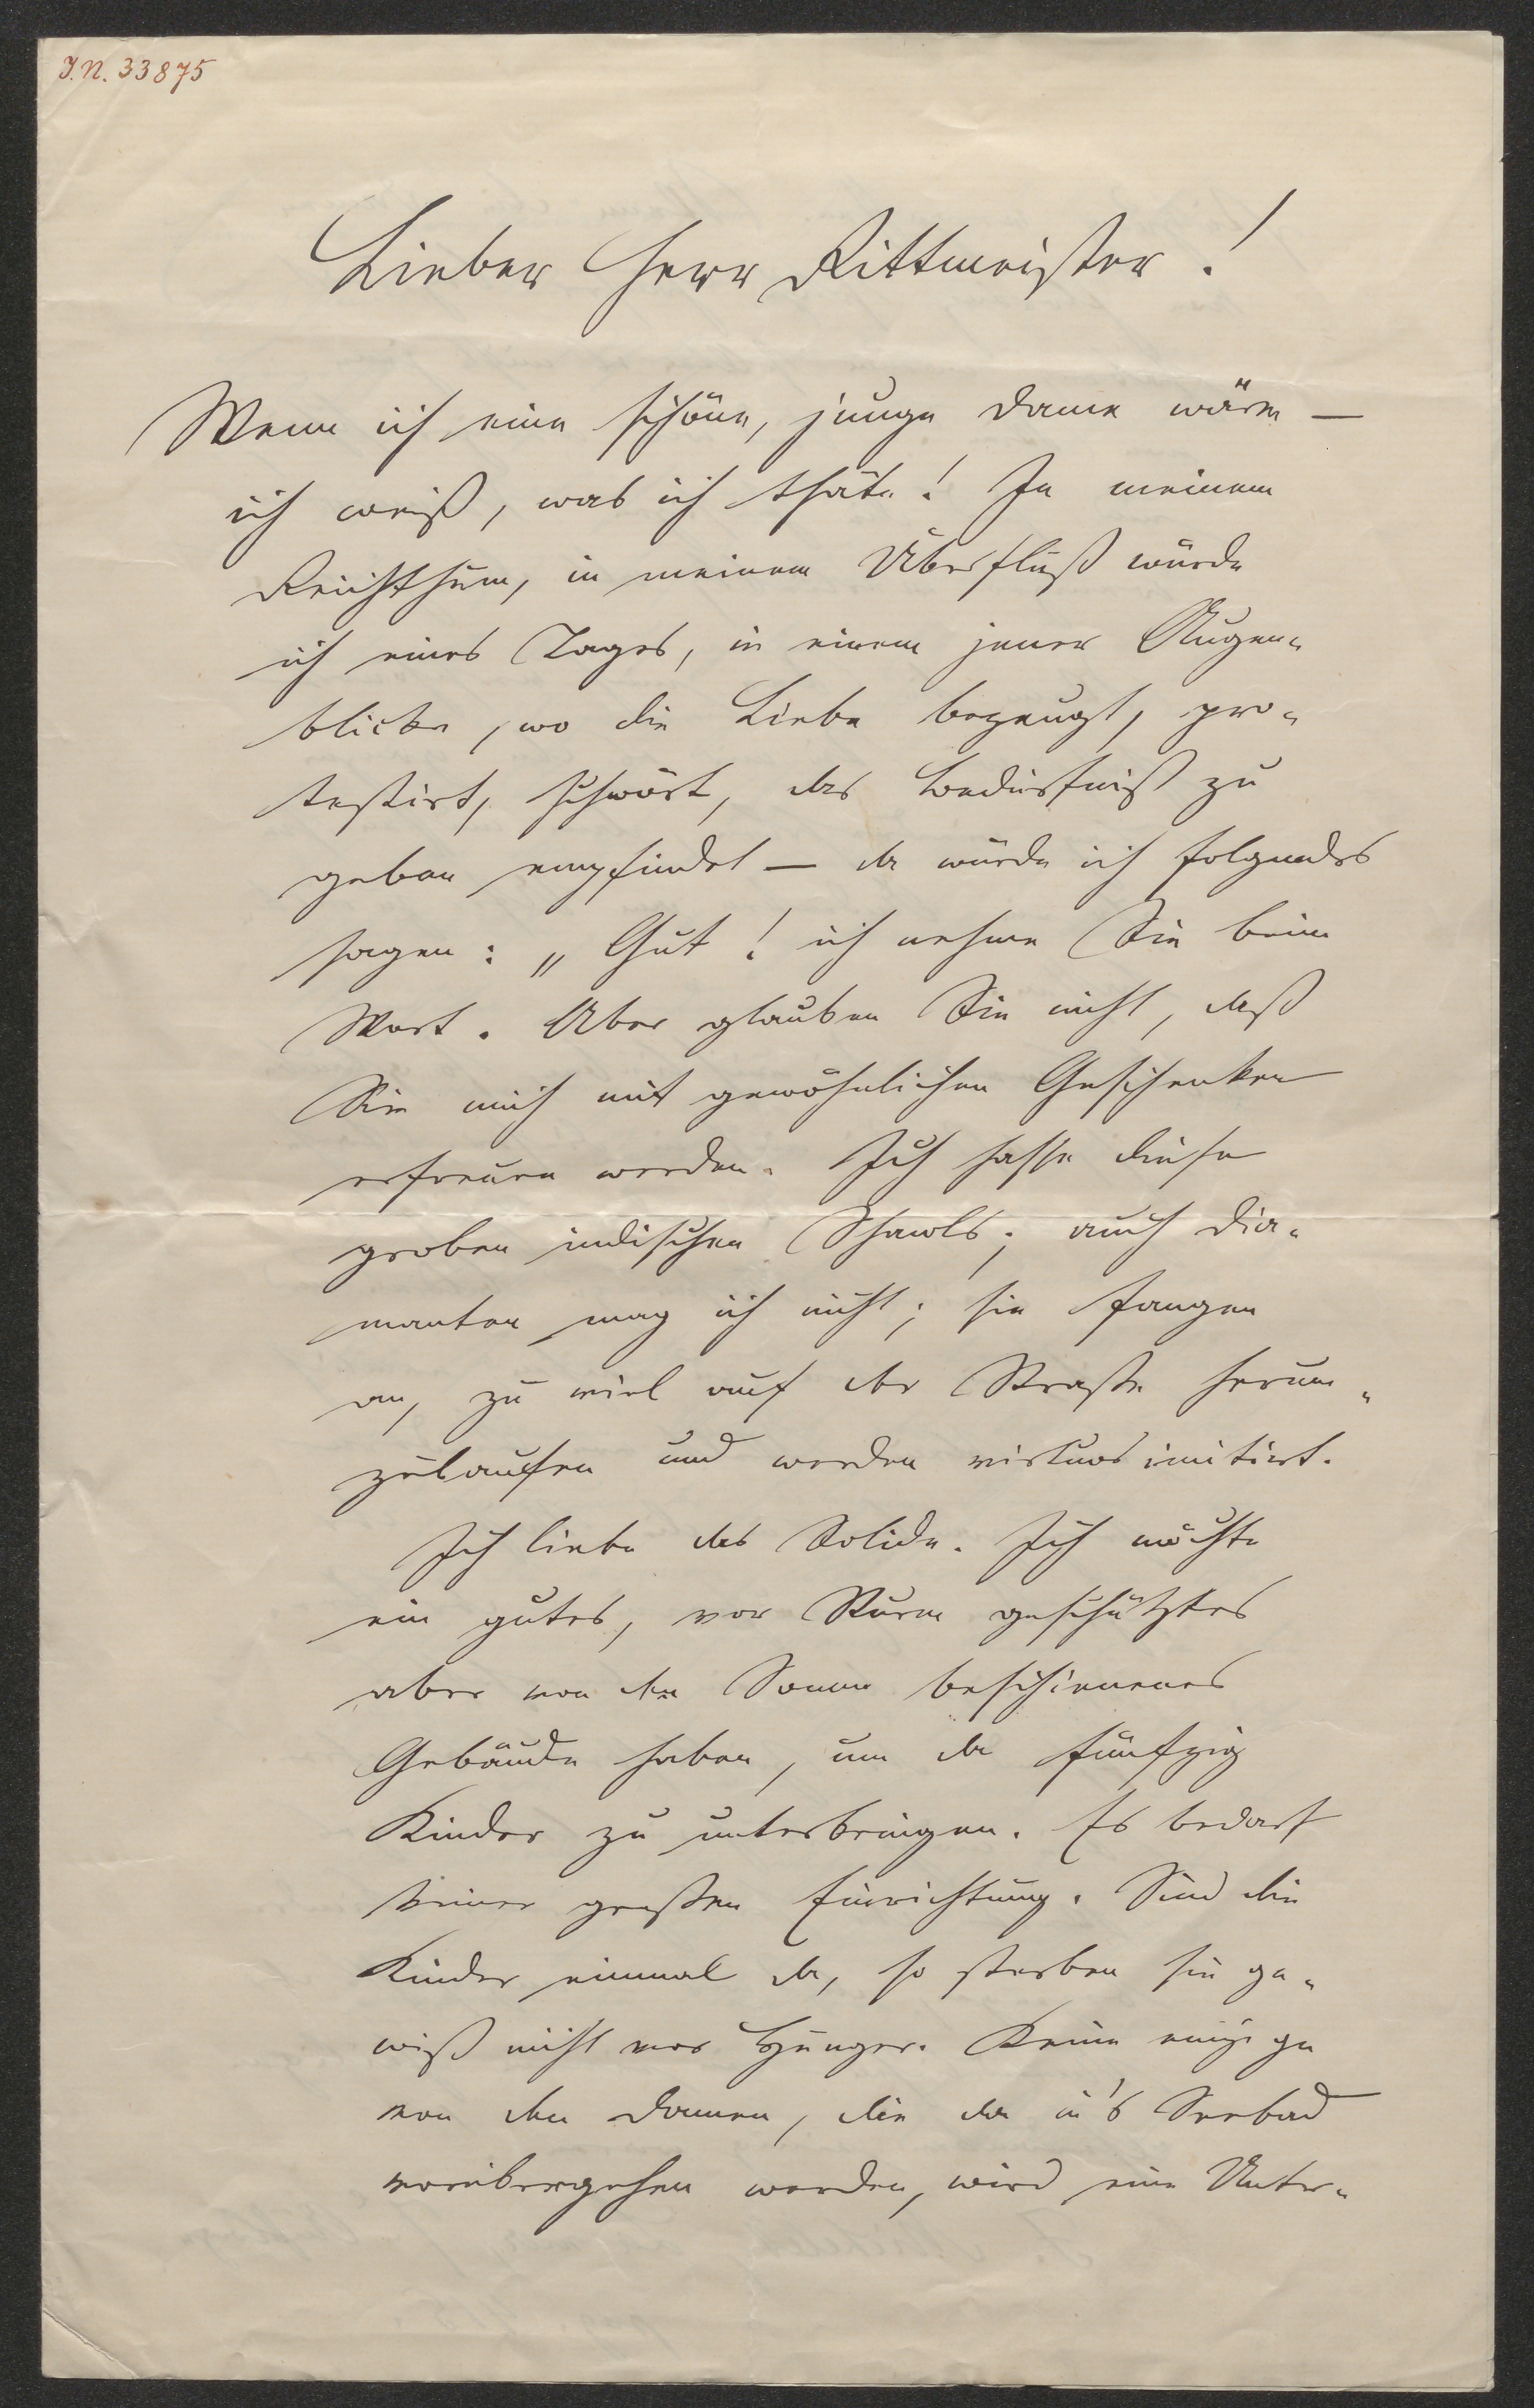 J.N. 33875
Lieber Herr Rittmeister!
Wenn ich eine schöne, junge Dame wäre —
ich weiß, was ich thäte! In meinem
Reichthum, in meinem Überfluß würde
ich eines Tages, in einem jener Augen-
blicke, wo die Liebe bezeugt, pro-
testirt, schwört, das Bedürfniß zu
geben empfindet — da würde ich folgendes
sagen: „Gut! ich nehme Sie beim
Wort. Aber glauben Sie nicht, daß
Sie mich mit gewöhnlichen Geschenken
erfreuen werden. Ich hasse diese
groben indischen Shawls; auch Dia-
manten mag ich nicht; sie fangen
an, zu viel auf der Straße herum-
zulaufen und werden virtuos imitirt.
Ich liebe das Solide. Ich möchte
ein gutes, vor Sturm geschütztes
aber von der Sonne beschienenes
Gebäude haben, um da fünfzig
Kinder zu unterbringen. Es bedarf
keiner großen Einrichtung. Sind die
Kinder einmal da, so sterben sie ge-
wiß nicht vor Hunger. Keine einzige
von den Damen, die da in's Seebad
vorübergehen werden, wird eine Unter-